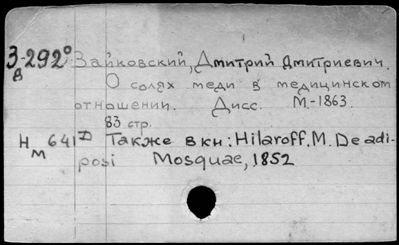 З-292° Зайковский, Дмитрий Дмитриевич.
в
О солях меди в медицинском
отношении. Дисс. М.-1863.
83 стр.
Н 641 D Также в кн: Hilaroff. M. De adi-
м
posi Mosquae, 1852